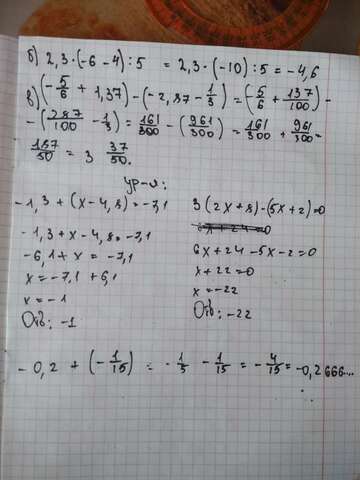 б) 2,3·(-6-4):5 = 2,3·(-10):5 = -4,6
в) (-5/6 + 1,37) - (-2,87 - 1/3) = (-5/6 + 137/100) -
- (287/100 - 1/3) = 161/300 - (961/300) = 161/300 + 961/300 =
187/50 = 3 37/50.
ур-я:
-1,3 + (x - 4,8) = -7,1
-1,3 + x - 4,8 = -7,1
-6,1 + x = -7,1
x = -7,1 + 6,1
x = -1
Отв: -1
3(2x+8)-(5x+2)=0
6x+24-5x-2=0
x+22=0
x=-22
Отв: -22
-0,2 + (-1/15) = -1/5 - 1/15 = -4/15 = -0,2666...